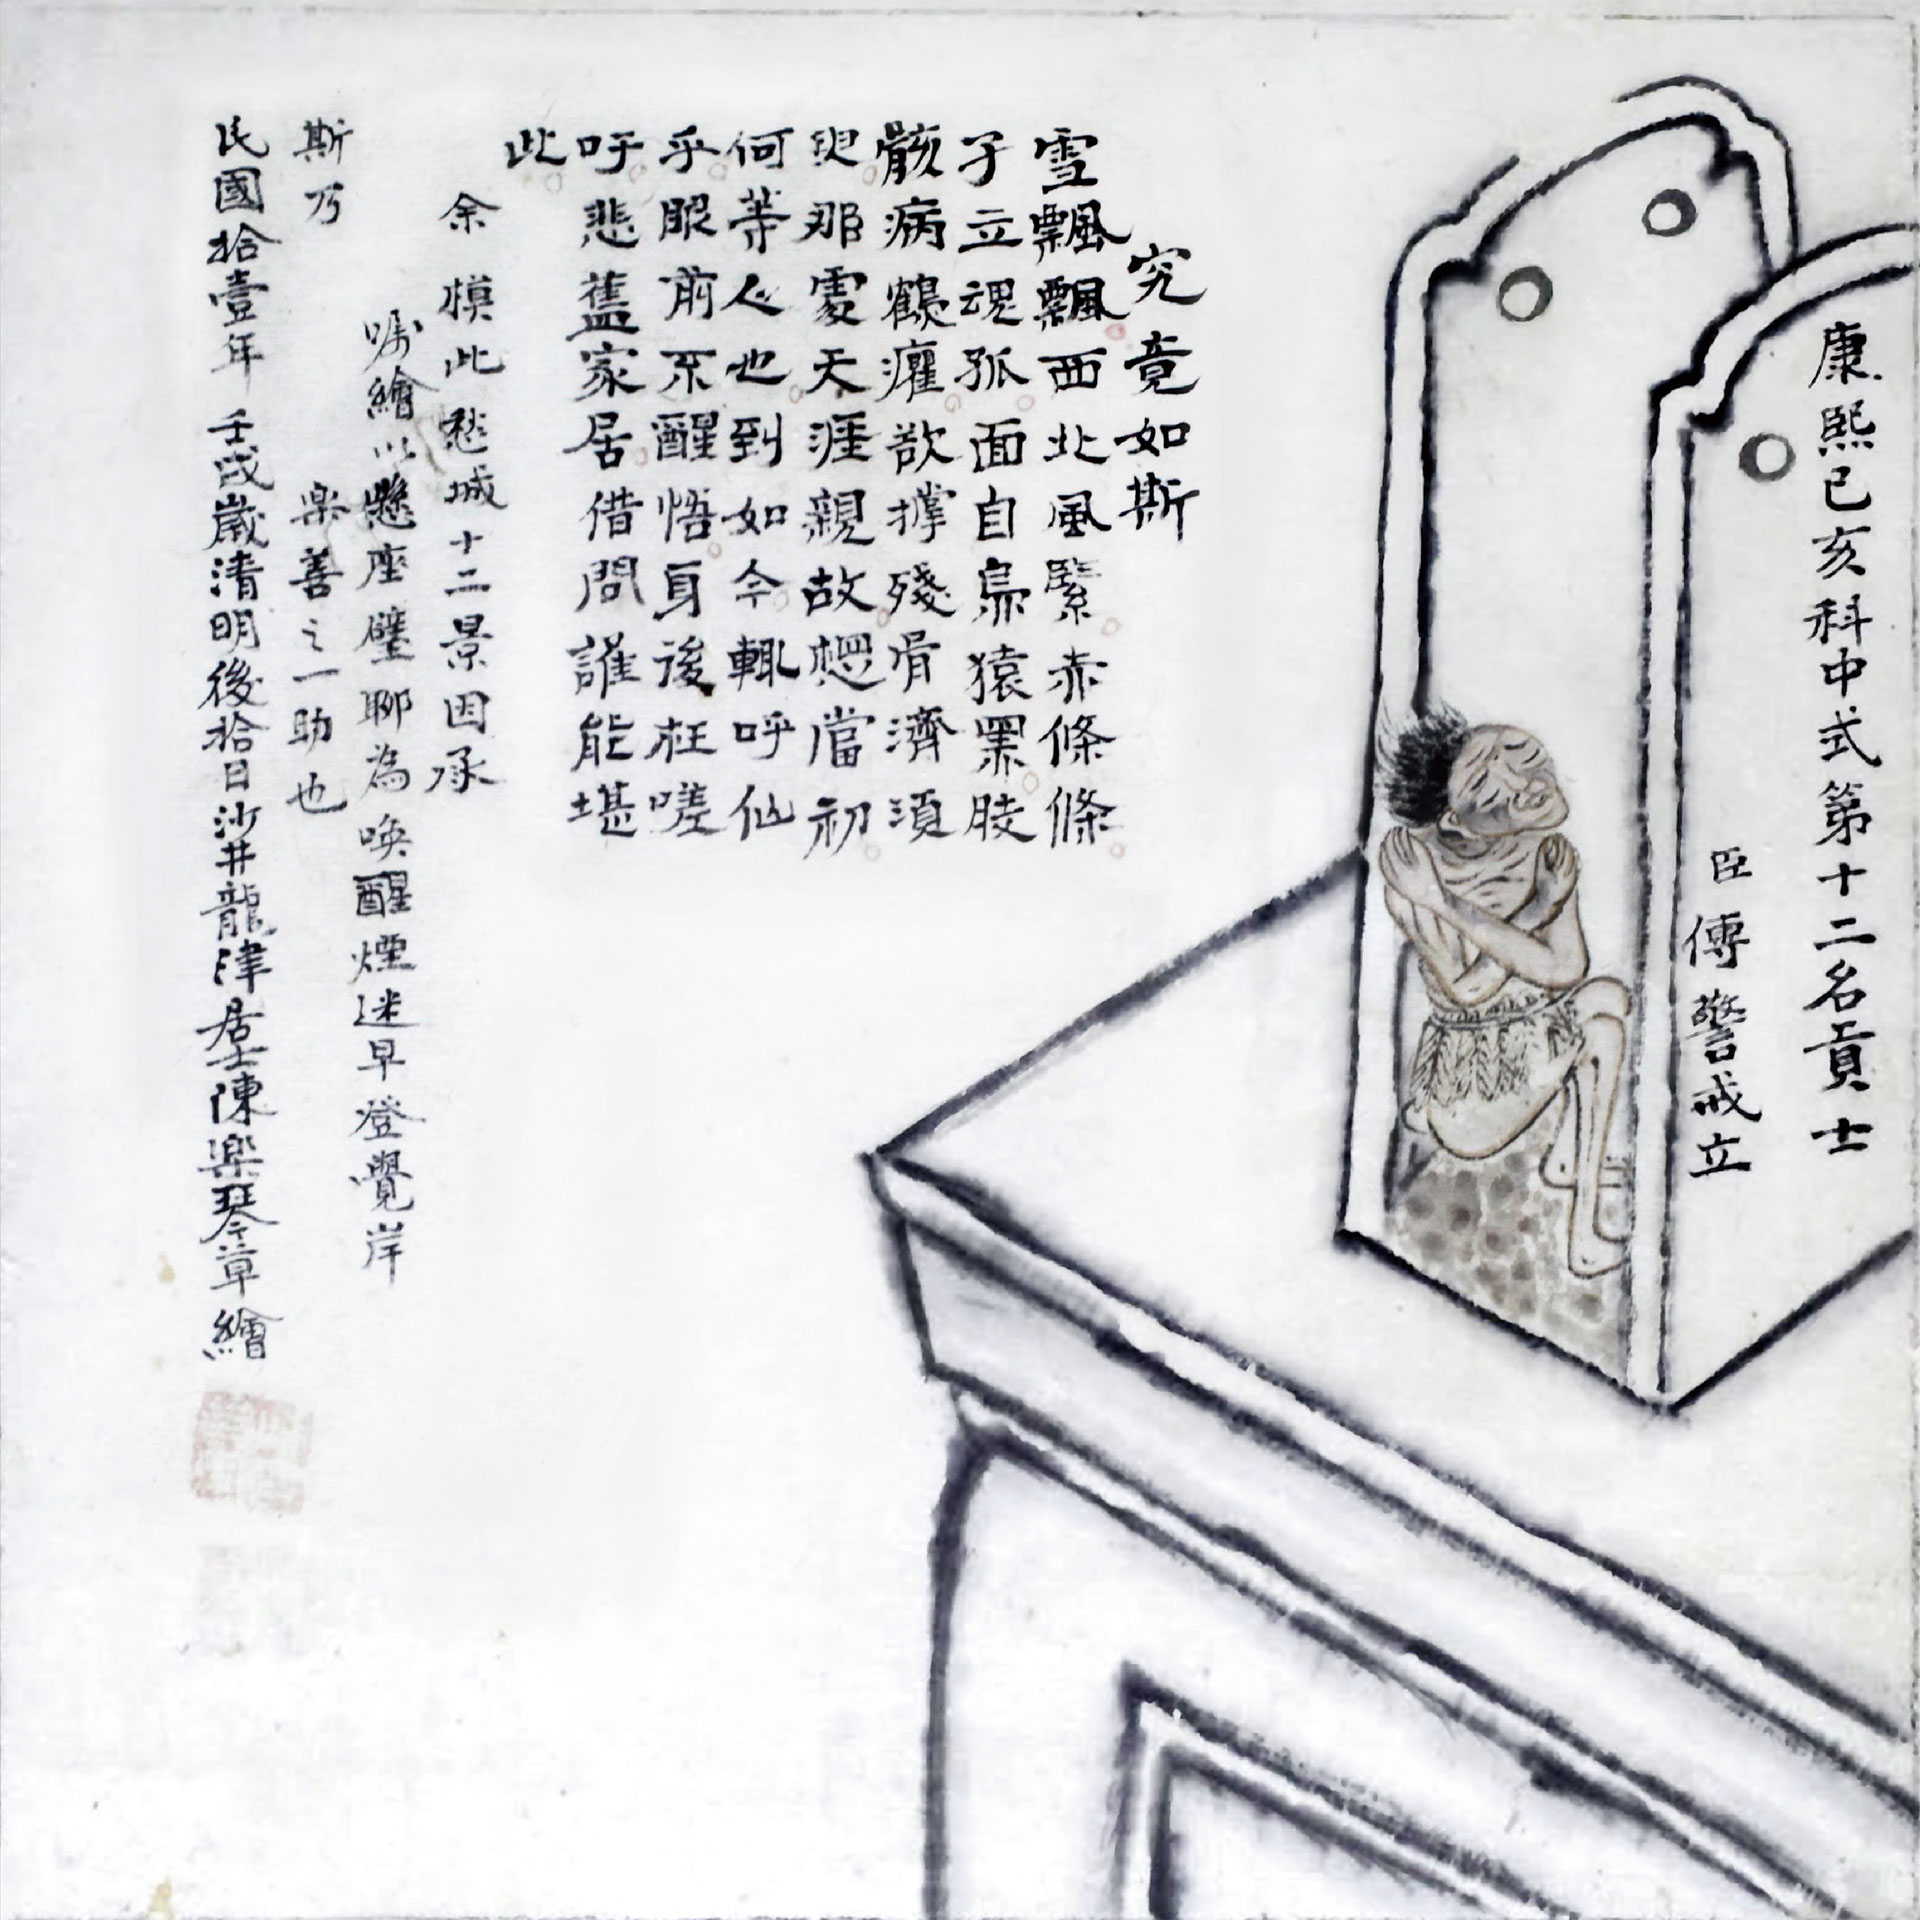 康熙己亥科中式第十二名貢士
臣傅警戒立
究竟如斯
雪飄飄西北風緊赤條條
子立魂孤面自鳧猿黑肢
骸病鶴癯欲撑殘骨濟須
臾那處天涯親故想當初
何等人也到如今輒呼仙
乎眼前不醒悟身後枉嗟
呼悲舊家居借問誰能堪
此
余模此愁城十二景因承
嘱繪以懸座壁聊為喚醒煙迷早登覺岸
斯乃
樂善之一助也
民國拾壹年壬戌歲清明後拾日沙井龍津居士陳樂琴草繪